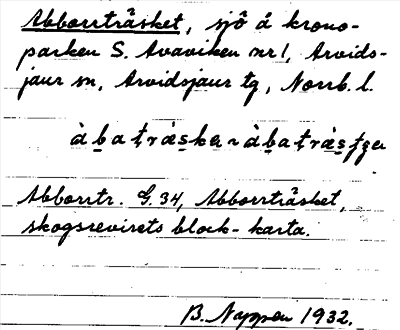 Abborrträsket, sjö å krono-
parken S. Avaviken nr 1, Arvids-
jaur sn, Arvidsjaur tg, Norrb. l.
Abborrtr. G. 34, Abborrträsket,
skogsrevirets block-karta.
1932.